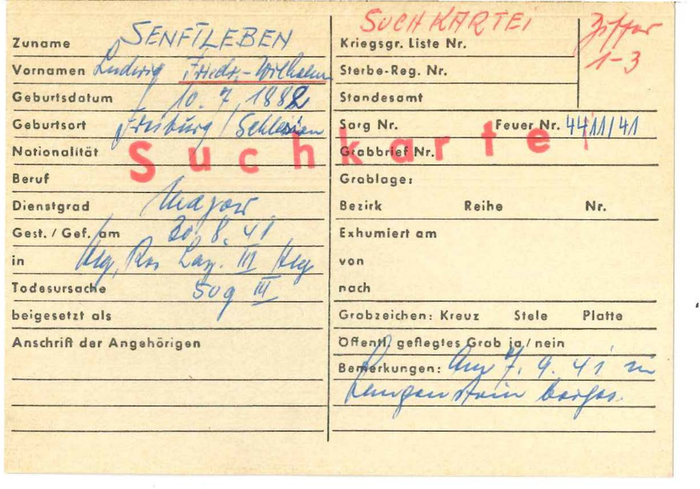 SUCHKARTEI
Ziffer
1-3
Suchkartei
Zuname SENFTLEBEN
Vornamen Ludwig Friedr.-Wilhelm
Geburtsdatum 10. 7. 1882
Geburtsort Freiburg / Schlesien
Nationalität
Beruf
Dienstgrad Major
Gest. / Gef. am 30. 8. 41
in Hbg, Res Laz. III Hbg
Todesursache 509 III
beigesetzt als
Anschrift der Angehörigen
Kriegsgr. Liste Nr.
Sterbe-Reg. Nr.
Standesamt
Sarg Nr. Feuer Nr. 4411/41
Grabbrief Nr.
Grablage:
Bezirk Reihe Nr.
Exhumiert am
von
nach
Grabzeichen: Kreuz Stele Platte
Öffentl. gepflegtes Grab ja / nein
Bemerkungen: Am 7. 9. 41 in